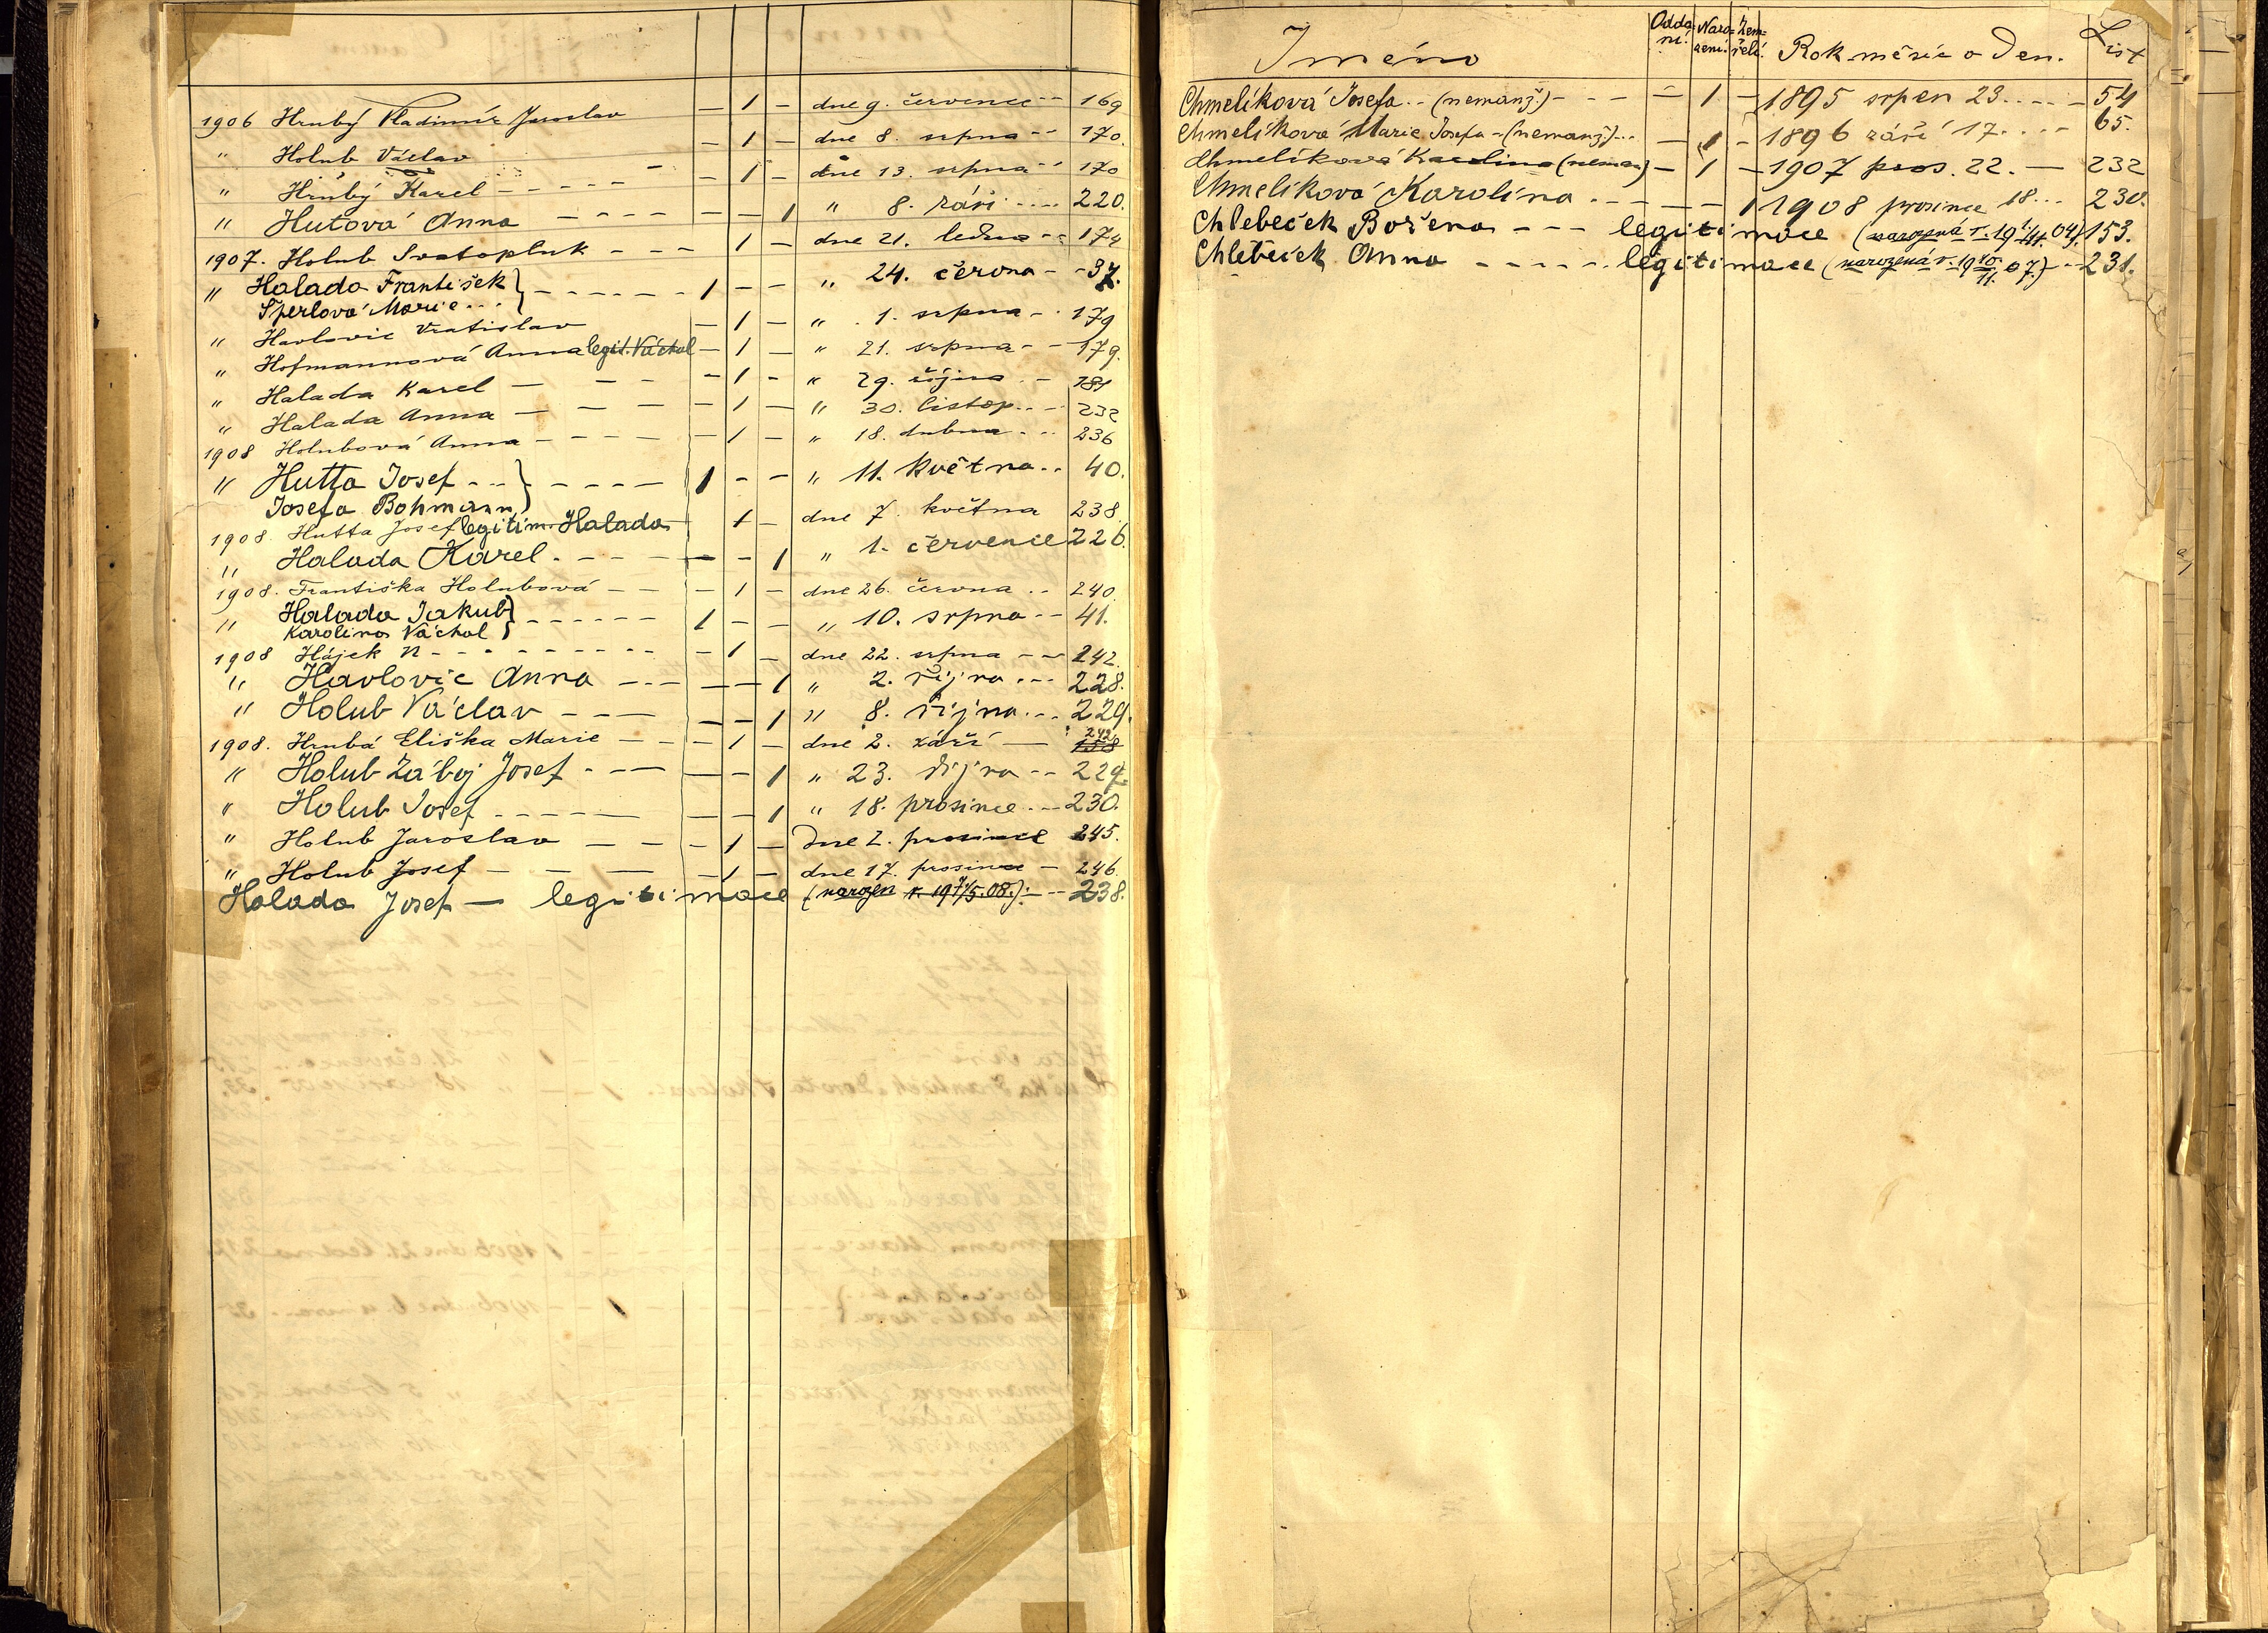 1906 Hrubý Vladimír Jaroslav — 1 — dne 9. července -- 169
" Holub Václav — 1 — dne 8. srpna -- 170.
" Hrubý Karel - - - - - — 1 — dne 13. srpna -- 170
" Hutová Anna - - - - — — 1 " 8. září .... 220.
1907. Holub Svatopluk - - - 1 — dne 21. ledna -- 174
" Halada František } - - - - - 1 — — " 24. června - - 37.
Šperlová Marie...
" Havlovic Vratislav — 1 — " 1. srpna - . 179
" Hofmannová Anna legit. Váchal — 1 — " 21. srpna - - 179.
" Halada Karel — — — - 1 - " 29. října . - 181
" Halada Anna — — — - 1 — " 30. listop. . - 232
1908 Holubová Anna - - - — 1 — " 18. dubna - .. 236
" Hutta Josef - - } - - - - — 1 - - " 11. května .. 40.
Josefa Bohmann
1908. Hutta Josef legitim. Halada 1 — dne 7. května 238.
" Halada Karel . - - - - — - 1 " 1. července 226.
1908. Františka Holubová — — - 1 — dne 26. června .. 240.
" Halada Jakub } - - - - - - 1 — — " 10. srpna -- 41.
Karolina Váchal
1908 Hájek N - - - - - - - - - 1 — dne 22. srpna - - 242.
" Havlovic Anna - - - — — 1 " 2. října ... 228.
" Holub Václav - - — — — 1 " 8. října . - - 229.
1908. Hrubá Eliška Marie — — - 1 — dne 2. září — 158 242
" Holub Záboj Josef - - — — - 1 " 23. října -- 229.
" Holub Josef - - - - - — — 1 " 18. prosince . - - 230.
" Holub Jaroslav — — - 1 — Dne 2. prosince 245.
" Holub Josef — — — - 1 — dne 17. prosince — 246.
Halada Josef — legitimace (narozen r. 19 7/5. 08.): - - 238.
Jméno Oddaní. Narození. Zemřelí. Rok měsíc a Den. List
Chmelíková Josefa .. (nemanž.) - - - — 1 — 1895 srpen 23. . . - - 54
Chmelíková Marie Josefa - (nemanž.) .. — 1 - 1896 září 17. . . - 65.
Chmelíková Karolina (neman) — 1 — 1907 pros. 22. — 232
Chmelíková Karolína . - - — — 1 1908 prosince 18... 230.
Chlebeček Božena - - - legitimace (narozená r. 19 1/11. 04). 153.
Chlebeček Anna - - - - - legitimace (narozená r. 19 10/11. 07.) - - 231.